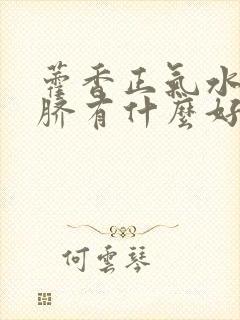 藿香正氣水
臍有什麼好
何雲琴